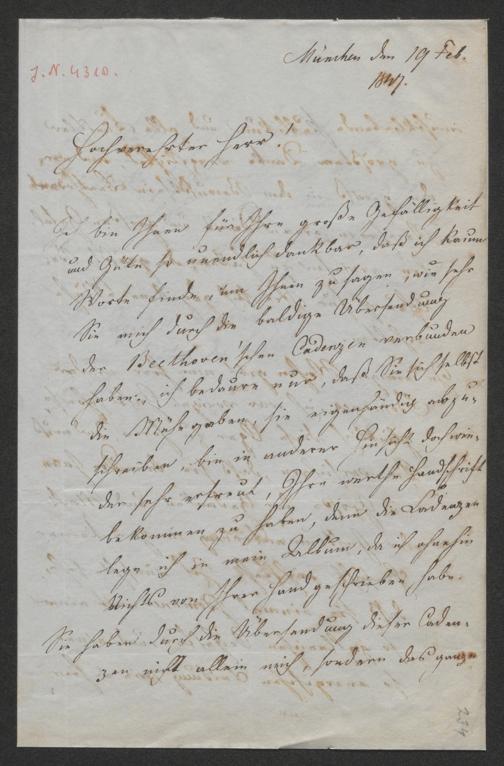 München den 19 Feb.
1847.
J. N. 4310.
Hochverehrter Herr!
Ich bin Ihnen für Ihre große Gefälligkeit
und Güte so unendlich dankbar, daß ich kaum
Worte finde, um Ihnen zu sagen, wie sehr
Sie mich durch die baldige Übersendung
der Beethoven'schen Cadenzen verbunden
haben, ich bedaure nur, daß Sie sich selbst
die Mühe gaben, sie eigenhändig abzu-
schreiben, bin in anderer Hinsicht doch wie-
der sehr erfreut, Ihre werthe Handschrift
bekommen zu haben, denn die Cadenzen
lege ich in mein Album, da ich ohnehin
Nichts von Ihrer Hand geschrieben habe.
Sie haben durch die Übersendung dieser Caden-
zen nicht allein mich, sondern das ganze
234